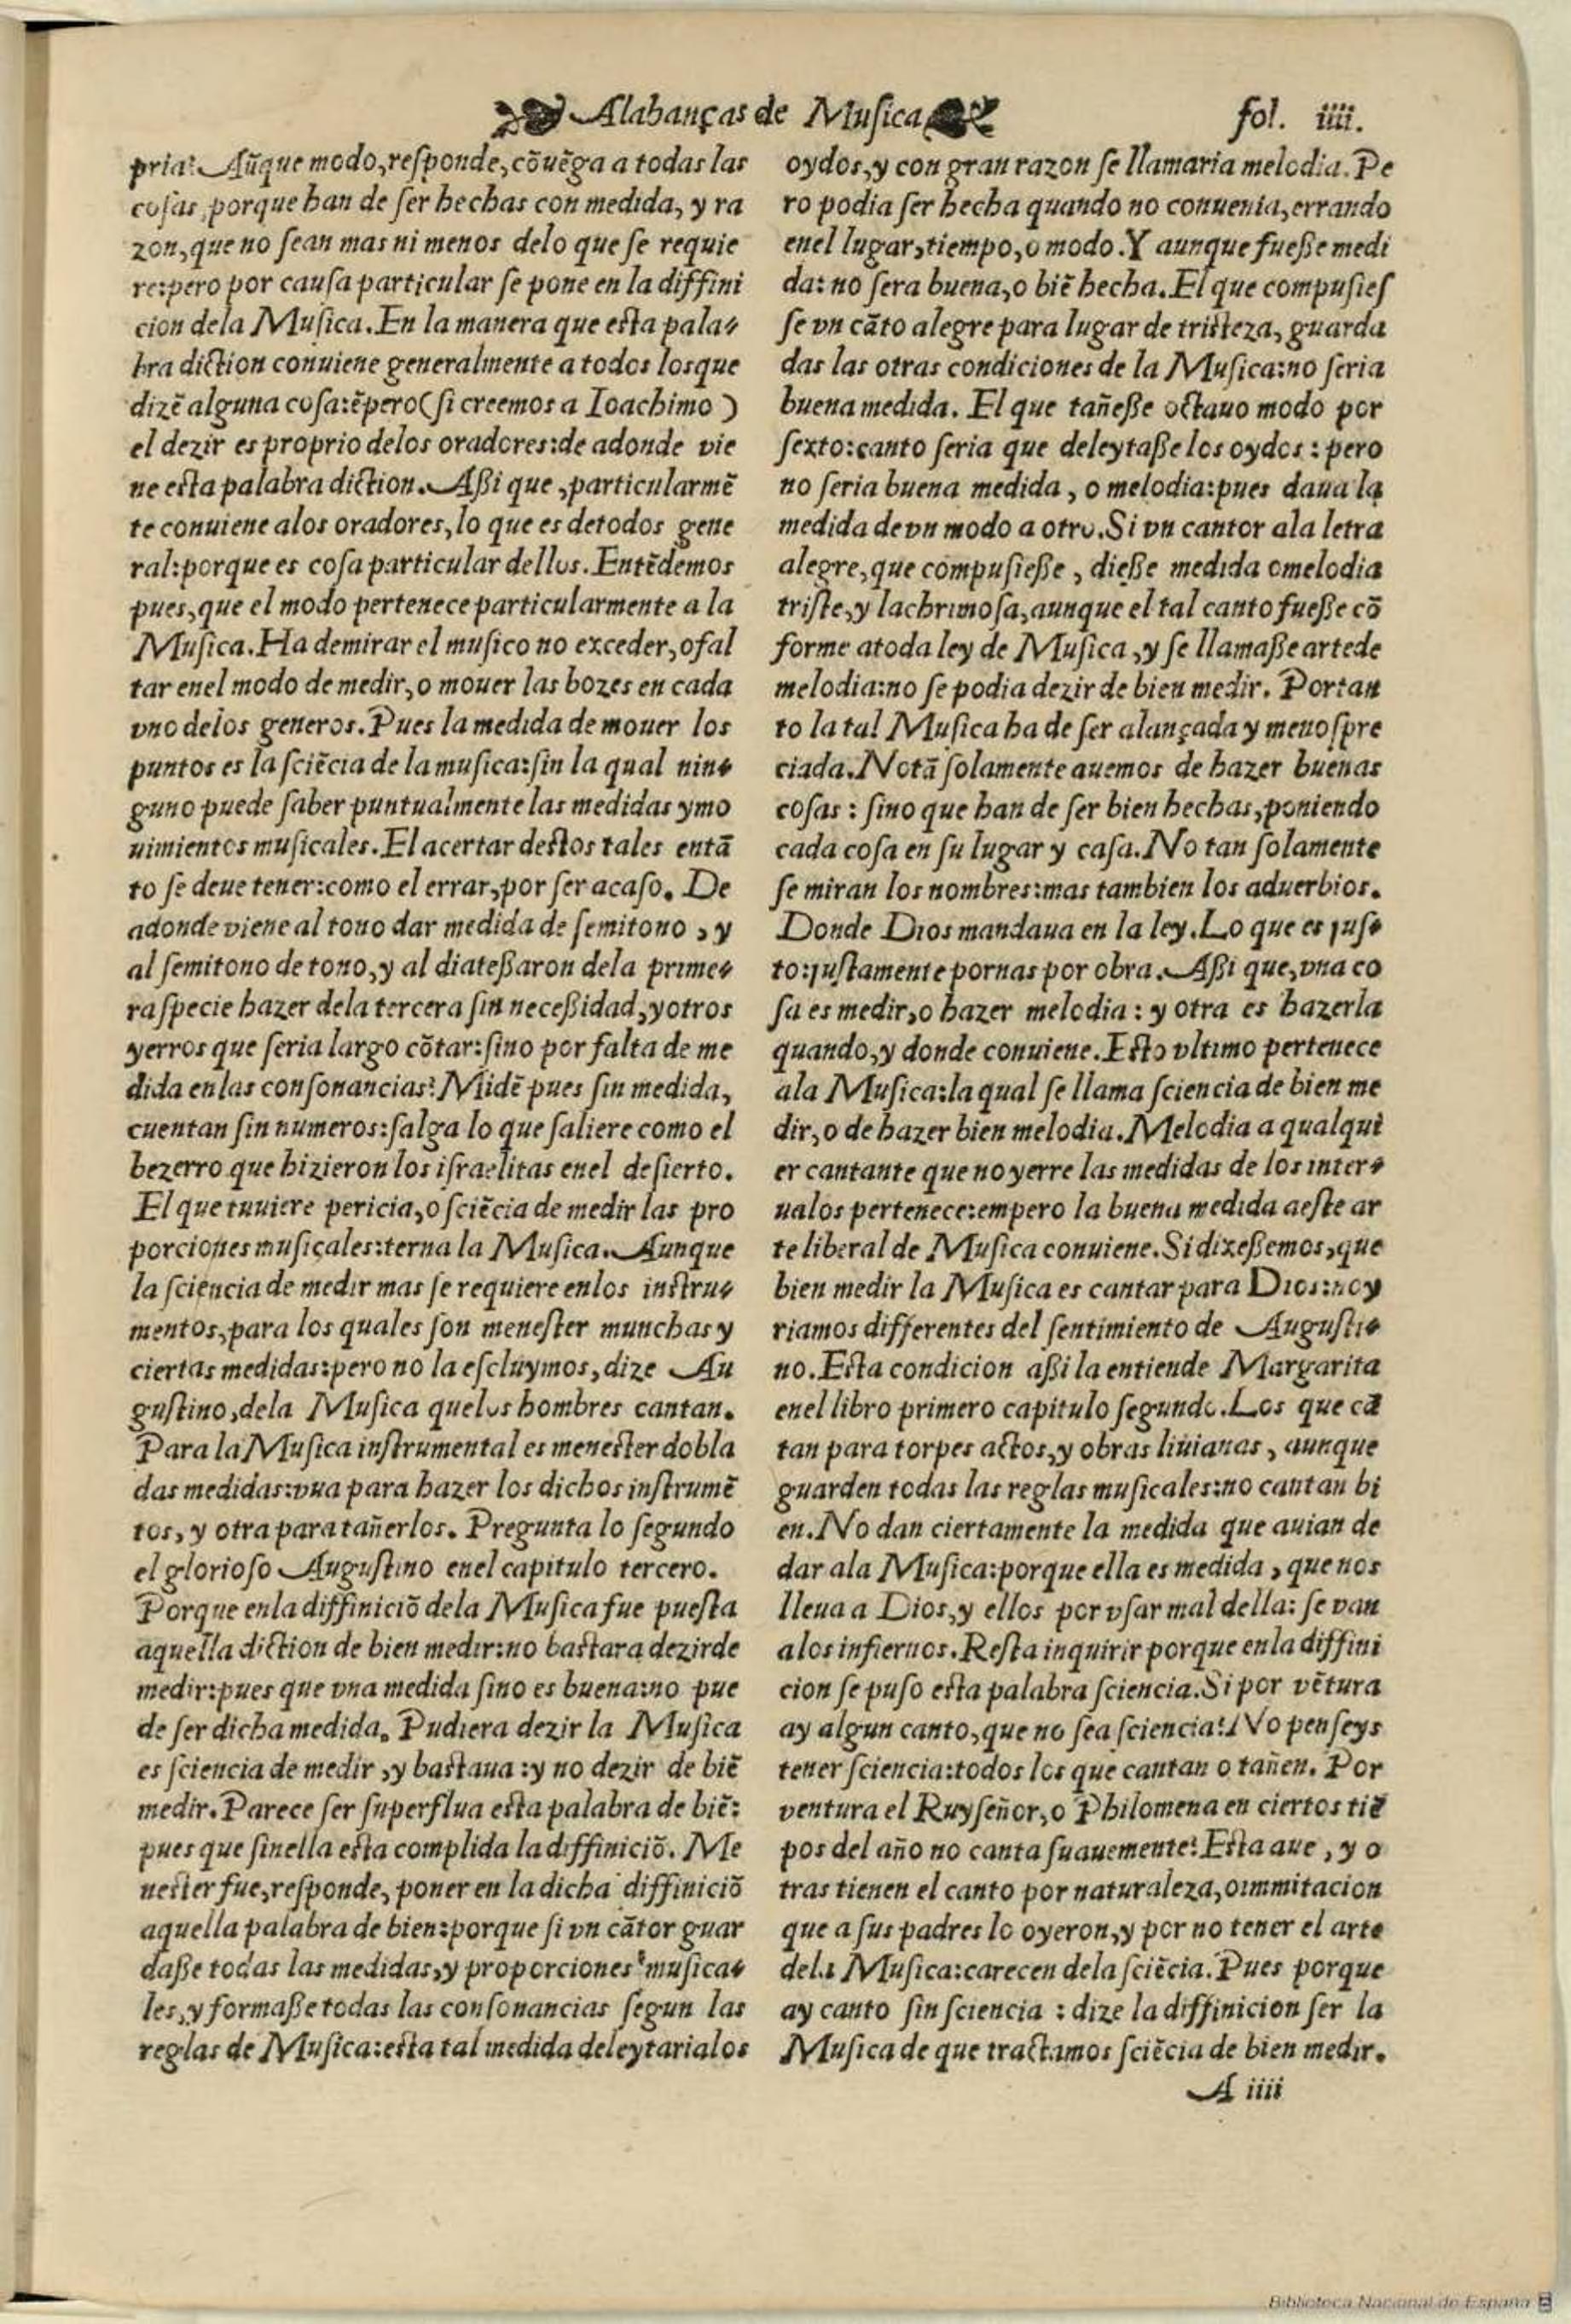 Alabanças de Musica fol. iiii.
pria? Aũque modo, responde, cõuẽga a todas las
cosas, porque han de ser hechas con medida, y ra
zon, que no sean mas ni menos delo que se requie
re: pero por causa particular se pone en la diffini
cion dela Musica. En la manera que esta pala-
bra diction conuiene generalmente a todos losque
dizẽ alguna cosa: ẽpero (si creemos a Ioachimo)
el dezir es proprio delos oradores: de adonde vie
ne esta palabra diction. Aßi que, particularmẽ
te conuiene alos oradores, lo que es detodos gene
ral: porque es cosa particular dellos. Entẽdemos
pues, que el modo pertenece particularmente a la
Musica. Ha demirar el musico no exceder, ofal
tar enel modo de medir, o mouer las bozes en cada
vno delos generos. Pues la medida de mouer los
puntos es la sciẽcia de la musica: sin la qual nin-
guno puede saber puntualmente las medidas ymo
uimientos musicales. El acertar destos tales entã
to se deue tener: como el errar, por ser acaso. De
adonde viene al tono dar medida de semitono, y
al semitono de tono, y al diateßaron dela prime-
ra specie hazer dela tercera sin neceßidad, yotros
yerros que seria largo cõtar: sino por falta de me
dida enlas consonancias? Midẽ pues sin medida,
cuentan sin numeros: salga lo que saliere como el
bezerro que hizieron los israelitas enel desierto.
El que tuuiere pericia, o sciẽcia de medir las pro
porciones musicales: terna la Musica. Aunque
la sciencia de medir mas se requiere enlos instru-
mentos, para los quales son menester munchas y
ciertas medidas: pero no la escluymos, dize Au
gustino, dela Musica quelos hombres cantan.
Para la Musica instrumental es menester dobla
das medidas: vna para hazer los dichos instrumẽ
tos, y otra para tañerlos. Pregunta lo segundo
el glorioso Augustino enel capitulo tercero.
Porque enla diffiniciõ dela Musica fue puesta
aquella diction de bien medir: no bastara dezirde
medir: pues que vna medida sino es buena: no pue
de ser dicha medida. Pudiera dezir la Musica
es sciencia de medir, y bastaua: y no dezir de biẽ
medir. Parece ser superflua esta palabra de biẽ:
pues que sinella esta complida la diffiniciõ. Me
nester fue, responde, poner en la dicha diffiniciõ
aquella palabra de bien: porque si vn cãtor guar
daße todas las medidas, y proporciones musica-
les, y formaße todas las consonancias segun las
reglas de Musica: esta tal medida deleytarialos
oydos, y con gran razon se llamaria melodia. Pe
ro podia ser hecha quando no conuenia, errando
enel lugar, tiempo, o modo. Y aunque fueße medi
da: no sera buena, o biẽ hecha. El que compusies
se vn cãto alegre para lugar de tristeza, guarda
das las otras condiciones de la Musica: no seria
buena medida. El que tañeße octauo modo por
sexto: canto seria que deleytaße los oydos: pero
no seria buena medida, o melodia: pues daua la
medida de vn modo a otro. Si vn cantor ala letra
alegre, que compusieße, dieße medida omelodia
triste, y lachrimosa, aunque el tal canto fueße cõ
forme atoda ley de Musica, y se llamaße artede
melodia: no se podia dezir de bien medir. Portan
to la tal Musica ha de ser alançada y menospre
ciada. Notã solamente auemos de hazer buenas
cosas: sino que han de ser bien hechas, poniendo
cada cosa en su lugar y casa. No tan solamente
se miran los nombres: mas tambien los aduerbios.
Donde Dios mandaua en la ley. Lo que es jus-
to: justamente pornas por obra. Aßi que, vna co
sa es medir, o hazer melodia: y otra es hazerla
quando, y donde conuiene. Esto vltimo pertenece
ala Musica: la qual se llama sciencia de bien me
dir, o de hazer bien melodia. Melodia a qualqui
er cantante que no yerre las medidas de los inter-
ualos pertenece: empero la buena medida aeste ar
te liberal de Musica conuiene. Si dixeßemos, que
bien medir la Musica es cantar para Dios: no y
riamos differentes del sentimiento de Augusti-
no. Esta condicion aßi la entiende Margarita
enel libro primero capitulo segundo. Los que cã
tan para torpes actos, y obras liuianas, aunque
guarden todas las reglas musicales: no cantan bi
en. No dan ciertamente la medida que auian de
dar ala Musica: porque ella es medida, que nos
lleua a Dios, y ellos por vsar mal della: se van
alos infiernos. Resta inquirir porque enla diffini
cion se puso esta palabra sciencia. Si por vẽtura
ay algun canto, que no sea sciencia? No penseys
tener sciencia: todos los que cantan o tañen. Por
ventura el Ruyseñor, o Philomena en ciertos tiẽ
pos del año no canta suauemente? Esta aue, y o
tras tienen el canto por naturaleza, oimmitacion
que a sus padres lo oyeron, y por no tener el arte
dela Musica: carecen dela sciẽcia. Pues porque
ay canto sin sciencia: dize la diffinicion ser la
Musica de que tractamos sciẽcia de bien medir.
A iiii
Biblioteca Nacional de España